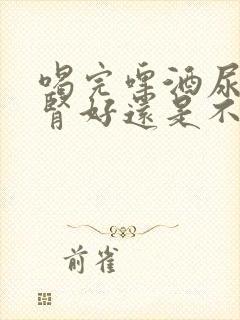 喝完啤酒尿
肾好還是不
前雀